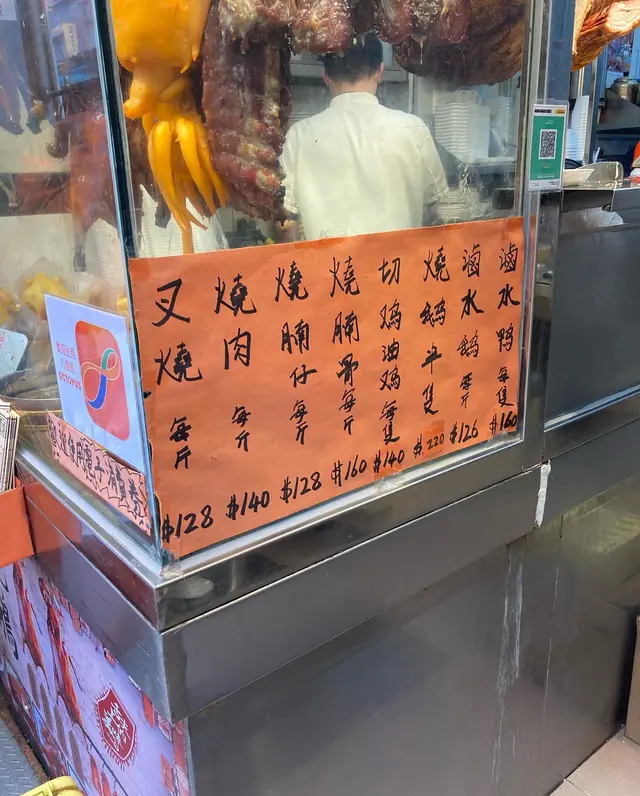 叉燒 每斤 $128
燒肉 每斤 $140
燒腩仔 每斤 $128
燒腩骨 每斤 $160
切鸡油鸡 每隻 $140
燒鹅半隻 $220
滷水鹅 每斤 $126
滷水鸭 每隻 $160
OCTOPUS
歡迎使用電子消費券